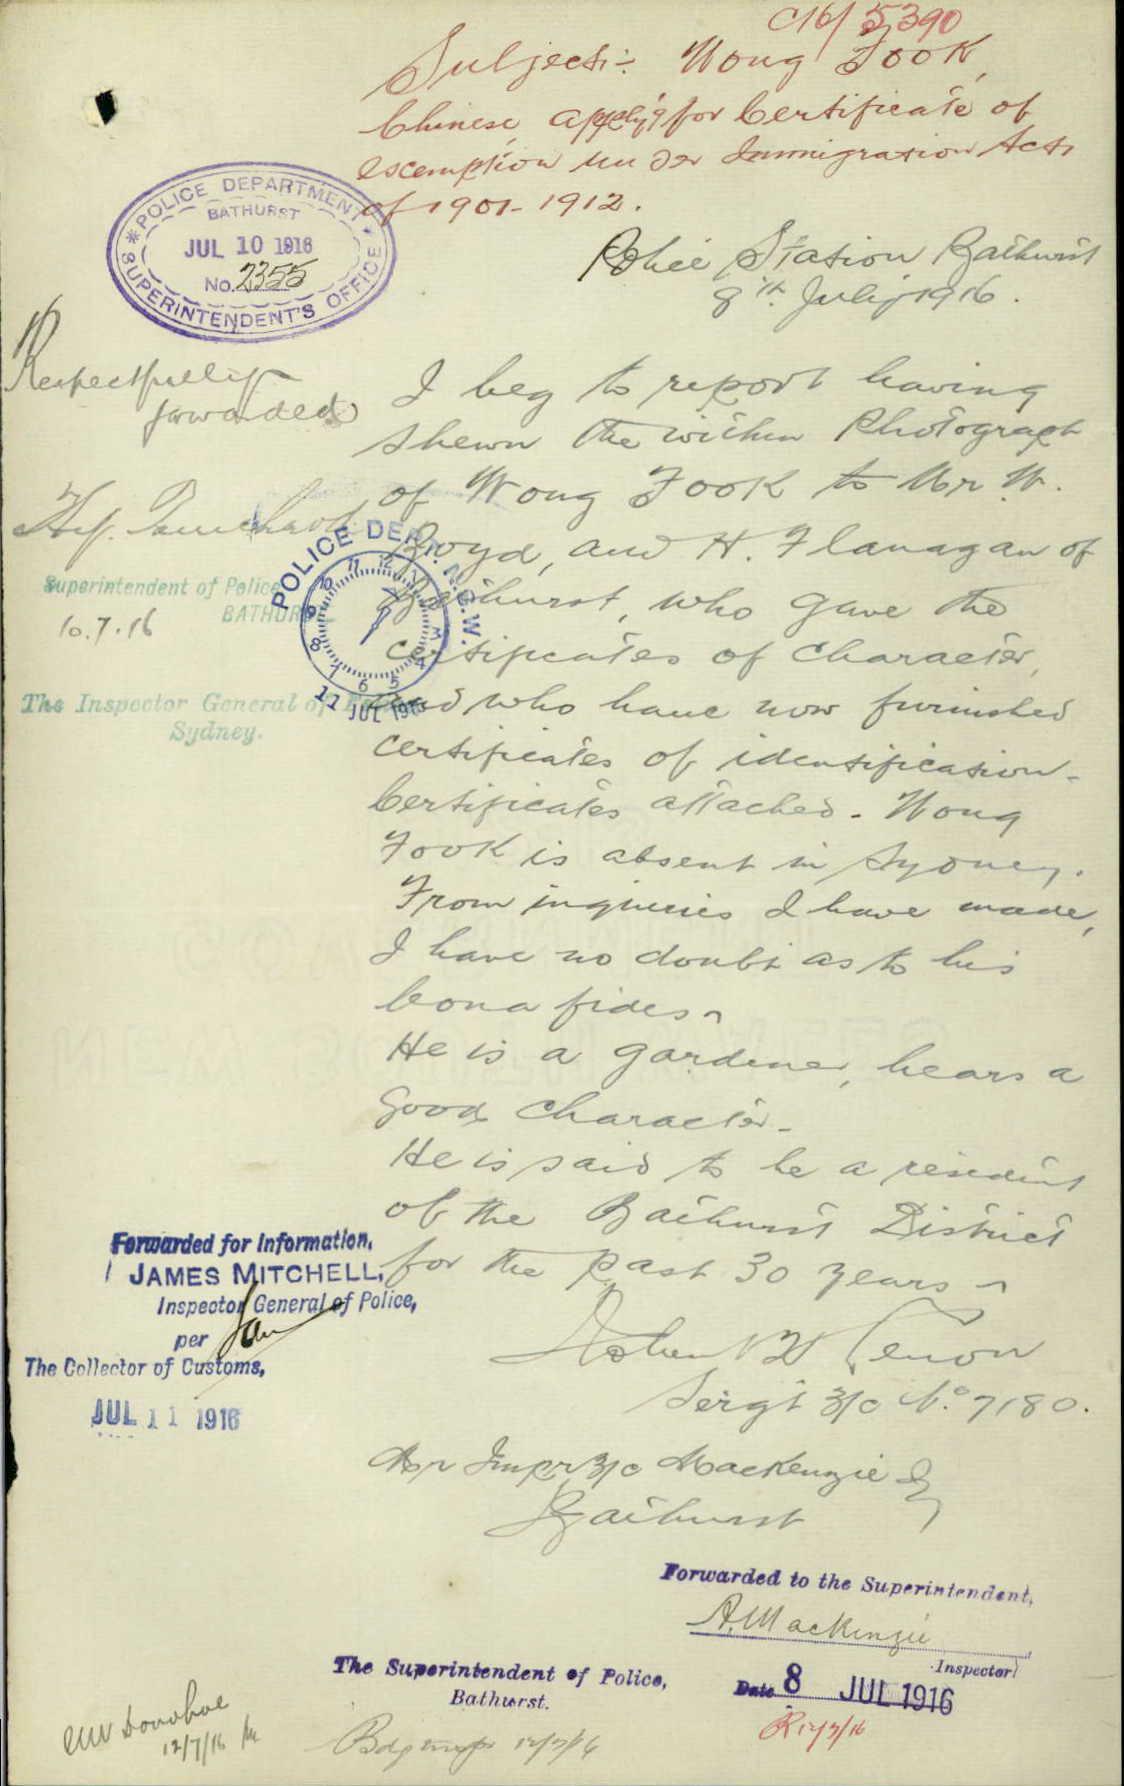 C16/5390
Subject:- Wong Fook,
Chinese, apply'g for Certificate of
exemption under Immigration Acts
of 1901-1912.
POLICE DEPARTMENT
BATHURST
JUL 10 1916
No. 2355
SUPERINTENDENT'S OFFICE
Police Station Bathurst
8th July 1916.
Respectfully
forwarded
I beg to report having
shewn the within Photograph
of Wong Fook to Mr. W.
Boyd, and H. Flanagan of
Bathurst, who gave the
certificates of character,
and who have now furnished
certificates of identification-
Certificates attached. Wong
Fook is absent in Sydney.
From inquiries I have made,
I have no doubt as to his
bona fides
He is a gardener, bears a
good character-
He is said to be a resident
of the Bathurst District
for the past 30 years
Superintendent of Police
BATHURST
10.7.16
POLICE DEPT. N.S.W.
12 1 2 3 4 5 6 7 8 9 10 11
11 JUL 1916
The Inspector General of Police
Sydney.
Forwarded for information,
JAMES MITCHELL,
Inspector General of Police,
per
The Collector of Customs,
JUL 11 1916
Sergt 3/c No. 7180.
Mr Inspr 3/c MacKenzie
Bathurst
Forwarded to the Superintendent,
A. MacKenzie
Inspector
Date 8 JUL 1916
The Superintendent of Police,
Bathurst.
Donohoe
12/7/16
12/7/16
12/7/16